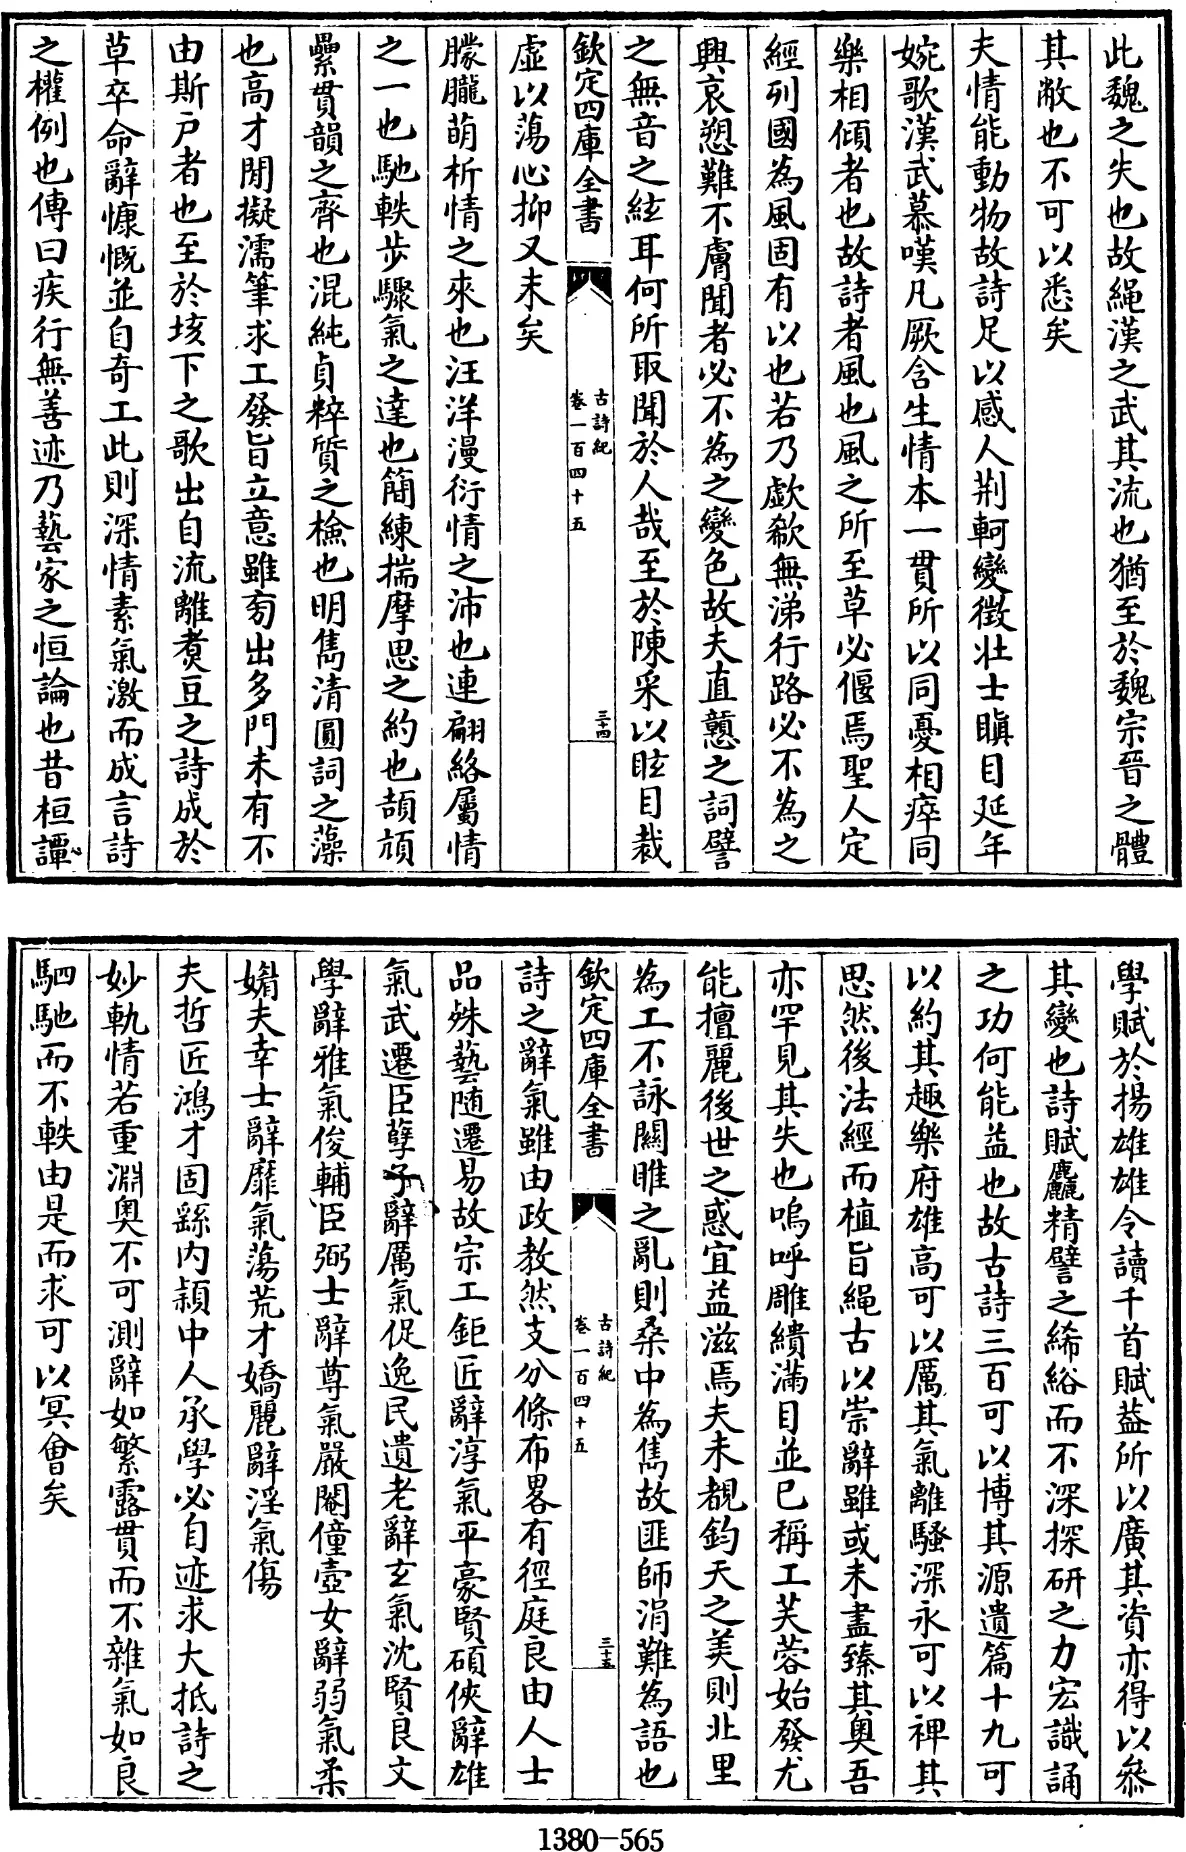 此魏之失也故繩漢之武其流也猶至於魏宗晉之體
其敝也不可以悉矣
夫情能動物故詩足以感人荆軻變徵壯士瞋目延年
婉歌漢武慕嘆凡厥含生情本一貫所以同憂相瘁同
樂相傾者也故詩者風也風之所至草必偃焉聖人定
經列國為風固有以也若乃歔欷無涕行路必不為之
興哀愬難不膚聞者必不為之變色故夫直戇之詞譬
之無音之絃耳何所取聞於人哉至於陳采以眩目裁
欽定四庫全書
古詩紀
卷一百四十五
三十四
虛以蕩心抑又末矣
朦朧萌析情之來也汪洋漫衍情之沛也連翩絡屬情
之一也馳軼步驟氣之達也簡練揣摩思之約也頡頏
纍貫韻之齊也混純貞粹質之檢也明雋清圓詞之藻
也高才閒擬濡筆求工發旨立意雖旁出多門未有不
由斯户者也至於垓下之歌出自流離煑豆之詩成於
草卒命辭慷慨並自奇工此則深情素氣激而成言詩
之權例也傳曰疾行無善迹乃藝家之恒論也昔桓譚
學賦於揚雄雄令讀千首賦葢所以廣其資亦得以叅
其變也詩賦麤精譬之絺綌而不深探研之力宏識誦
之功何能益也故古詩三百可以博其源遺篇十九可
以約其趣樂府雄高可以厲其氣離騷深永可以裨其
思然後法經而植旨繩古以崇辭雖或未盡臻其奧吾
亦罕見其失也嗚呼雕繢滿目並已稱工芙蓉始發尤
能擅麗後世之惑宜益滋焉夫未覩鈞天之美則北里
為工不詠關雎之亂則桑中為雋故匪師涓難為語也
欽定四庫全書
古詩紀
卷一百四十五
三十五
詩之辭氣雖由政教然支分條布畧有徑庭良由人士
品殊藝随遷易故宗工鉅匠辭淳氣平豪賢碩俠辭雄
氣武遷臣孽子辭厲氣促逸民遺老辭玄氣沈賢良文
學辭雅氣俊輔臣弼士辭尊氣嚴閹僮壼女辭弱氣柔
媚夫幸士辭靡氣蕩荒才嬌麗辭淫氣傷
夫哲匠鴻才固繇内頴中人承學必自迹求大抵詩之
妙軌情若重淵奧不可測辭如繁露貫而不雜氣如良
駟馳而不軼由是而求可以冥會矣
1380-565